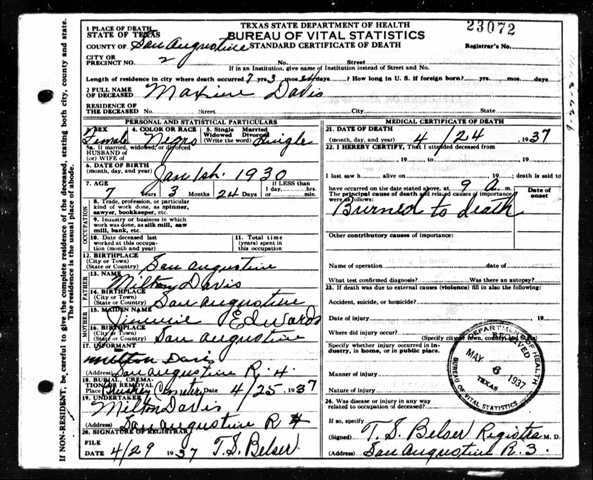 TEXAS STATE DEPARTMENT OF HEALTH
BUREAU OF VITAL STATISTICS
STANDARD CERTIFICATE OF DEATH
23072
Registrar's No.
1 PLACE OF DEATH
STATE OF TEXAS
COUNTY OF San Augustine
CITY OR
PRECINCT NO. 2 No. Street
If in an Institution, give name of Institution instead of Street and No.
Length of residence in city where death occurred 7 yrs 3 mos 24 days. How long in U. S. if foreign born? yrs. mos. days
2 FULL NAME
OF DECEASED Maxine Davis
RESIDENCE OF
THE DECEASED No. Street City State
PERSONAL AND STATISTICAL PARTICULARS
SEX 4. COLOR OR RACE 5. Single Married
Widowed Divorced
Female Negro (Write the word) Single
5a. If married, widowed or divorced
HUSBAND of
(or) WIFE of
6. DATE OF BIRTH
(month and day) Jan 1st. 1930
7. AGE If LESS than
1 day,
7 Years 3 Months 24 Days hrs./min.
8. Trade, profession, or particular
kind of work done, as spinner,
sawyer, bookkeeper, etc.
9. Industry or business in
which work was done, as silk mill, saw
mill, bank, etc.
10. Date deceased last
worked at this occupation
(month and year)
11. Total time
(years) spent in
this occupation
OCCUPATION
12. BIRTHPLACE
(City or Town)
(State or Country) San Augustine
FATHER
13. NAME Milton Davis
14. BIRTHPLACE
(City or Town)
(State or Country) San Augustine
MOTHER
15. MAIDEN NAME Edwards
16. BIRTHPLACE
(City or Town)
(State or Country) San Augustine
17. INFORMANT
Milton Davis
(Address) San Augustine R. 4
18. BURIAL, CREMATION OR REMOVAL
Place Cemetery 4/25 1937
19. UNDERTAKER
Milton Davis
(Address) San Augustine R 4
20. SIGNATURE OF REGISTRAR
FILE
DATE 4/29 1937 T. S. Belser
MEDICAL CERTIFICATE OF DEATH
21. DATE OF DEATH 4/24 1937
22. I HEREBY CERTIFY, That I attended deceased from
, 19 to , 19
I last saw h alive on , 19 death is said to
have occurred on the date stated above, at 9 a. m.
The principal cause of death and related causes of importance
were as follows: Date of
onset
Burned to death
Other contributory causes of importance:
Name of operation date of
What test confirmed diagnosis? Was there an autopsy?
23. If death was due to external causes (violence) fill in also the following:
Accident, suicide, or homicide?
Date of injury 19
Where did injury occur?
(Specify city or town, county, and State)
Specify whether injury occurred in industry, in home, or in public place.
Manner of injury
Nature of injury
24. Was disease or injury in any way
related to occupation of deceased?
If so, specify
(Signed) T. S. Belser Registrar M. D.
(Address) San Augustine R. 3.
DEPARTMENT OF HEALTH
RECEIVED
MAY
6
1937
TEXAS
BUREAU OF VITAL STATISTICS
IF NON-RESIDENT: be careful to give the complete residence of the deceased, stating both city, county and state.
The residence is the usual place of abode.